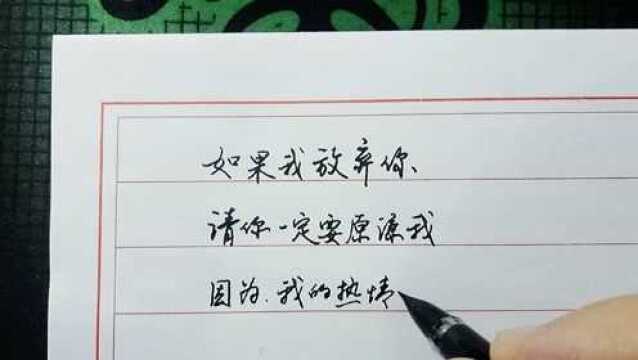 如果我放弃你、
请你一定要原谅我
因为.我的热情